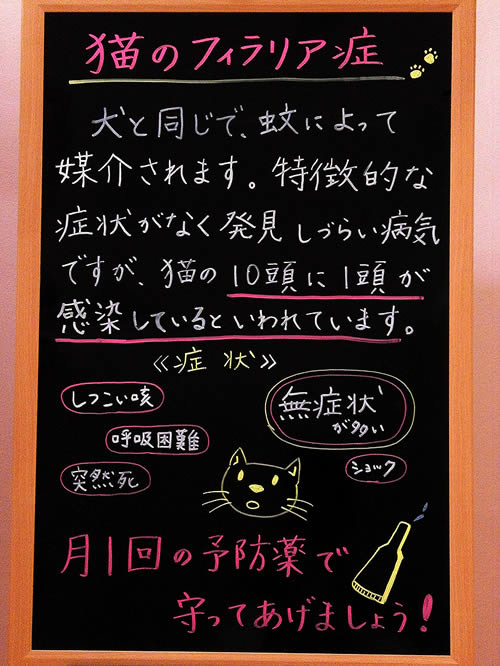 猫のフィラリア症
犬と同じで、蚊によって
媒介されます。特徴的な
症状がなく発見しづらい病気
ですが、猫の10頭に1頭が
感染しているといわれています。
《症状》
しつこい咳
無症状
が多い
呼吸困難
ショック
突然死
月1回の予防薬で
守ってあげましょう!